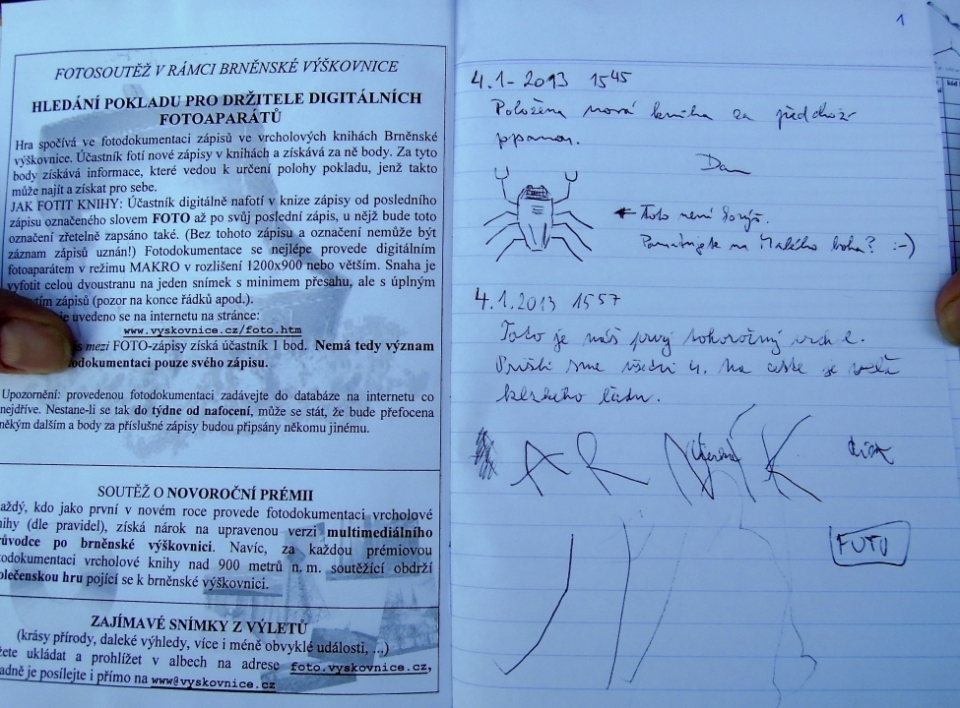 FOTOSOUTĚŽ V RÁMCI BRNĚNSKÉ VÝŠKOVNICE
HLEDÁNÍ POKLADU PRO DRŽITELE DIGITÁLNÍCH
FOTOAPARÁTŮ
Hra spočívá ve fotodokumentaci zápisů ve vrcholových knihách Brněnské
výškovnice. Účastník fotí nové zápisy v knihách a získává za ně body. Za tyto
body získává informace, které vedou k určení polohy pokladu, jenž takto
může najít a získat pro sebe.
JAK FOTIT KNIHY: Účastník digitálně nafotí v knize zápisy od posledního
zápisu označeného slovem FOTO až po svůj poslední zápis, u nějž bude toto
označení zřetelně zapsáno také. (Bez tohoto zápisu a označení nemůže být
záznam zápisů uznán!) Fotodokumentace se nejlépe provede digitálním
fotoaparátem v režimu MAKRO v rozlišení 1200x900 nebo větším. Snaha je
vyfotit celou dvoustranu na jeden snímek s minimem přesahu, ale s úplným
zápisů (pozor na konce řádků apod.).
je uvedeno se na internetu na stránce:
www.vyskovnice.cz/foto.htm
mezi FOTO-zápisy získá účastník 1 bod. Nemá tedy význam
pouze svého zápisu.
Upozornění: provedenou fotodokumentaci zadávejte do databáze na internetu co
nejdříve. Nestane-li se tak do týdne od nafocení, může se stát, že bude přefocena
někým dalším a body za příslušné zápisy budou připsány někomu jinému.
SOUTĚŽ O NOVOROČNÍ PRÉMII
aždý, kdo jako první v novém roce provede fotodokumentaci vrcholové
nihy (dle pravidel), získá nárok na upravenou verzi multimediálního
růvodce po brněnské výškovnici. Navíc, za každou prémiovou
todokumentaci vrcholové knihy nad 900 metrů n. m. soutěžící obdrží
olečenskou hru pojící se k brněnské výškovnici.
ZAJÍMAVÉ SNÍMKY Z VÝLETŮ
(krásy přírody, daleké výhledy, více i méně obvyklé události, ...)
žete ukládat a prohlížet v albech na adrese foto.vyskovnice.cz,
adně je posílejte i přímo na www@vyskovnice.cz
1
4.1-2013 15 45
Položena nová kniha za předchozí
Dan
Toto není
na Malého boha? :-)
4.1.2013 15 57
Toto je náš prvý tohoročný vrchol.
Prišli sme 4. Na ceste je veľa
ľadu.
FOTO